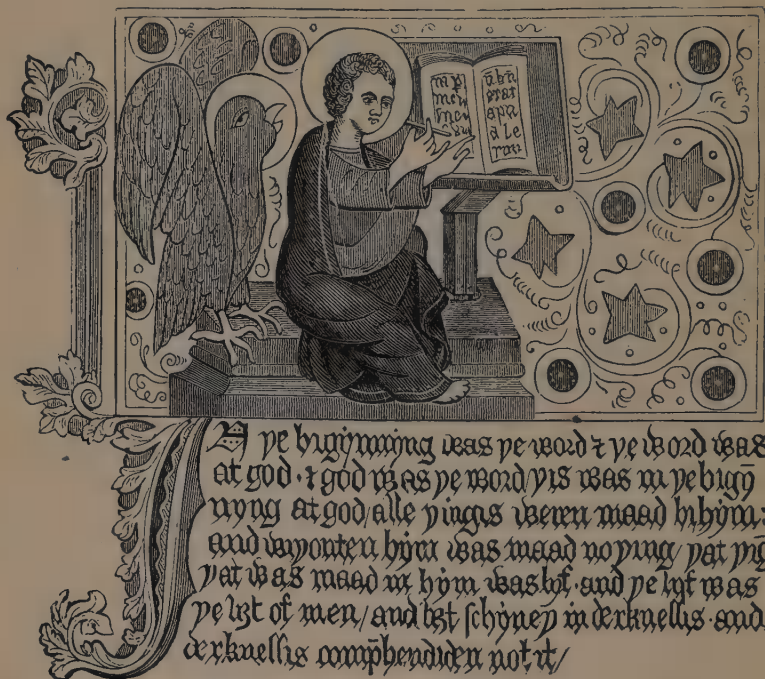 In ye bigynnyng was ye word ⁊ ye word was
at god · ⁊ god was ye word / yis was in ye bigȳ
nyng at god / alle yingis weren maad bi hym:
and wiyouten hym was maad no ying / yat yīg
yat was maad in hym was lyf · and ye lyf was
ye lyȝt of men / and lyȝt schyney in derknessis · and
derknessis comp̄hendiden not it /